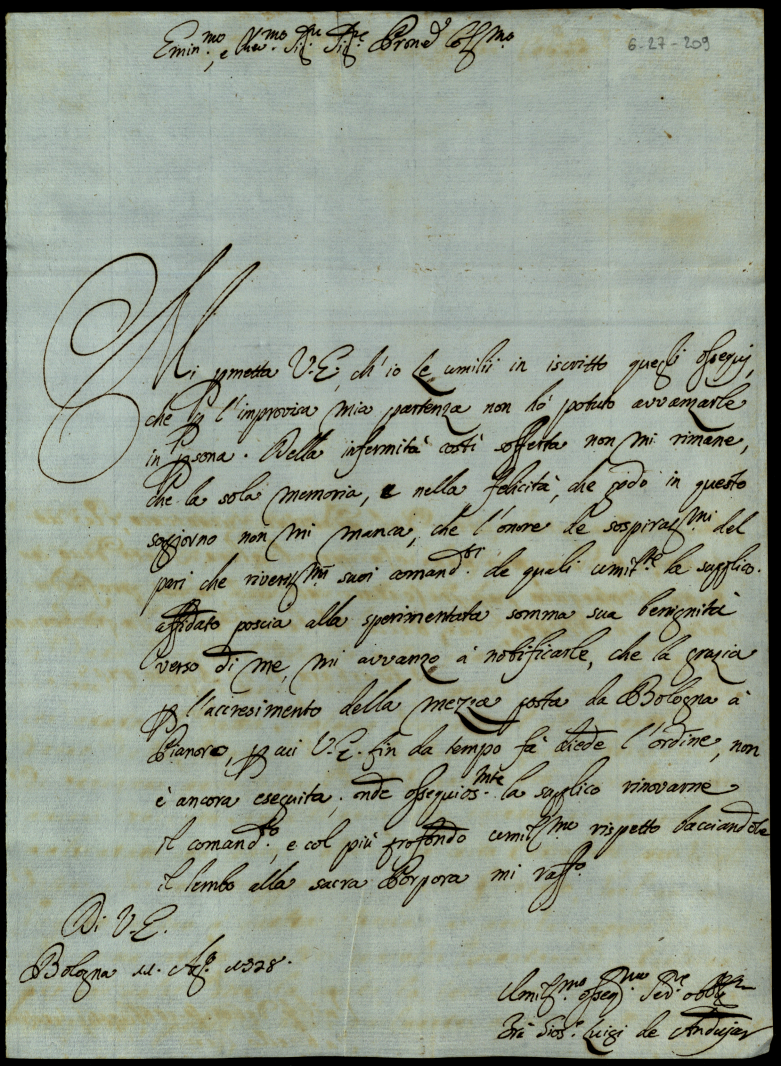 6-27-209
Emin.mo, e Rev.mo Sig.re Sig.re Prone Col.mo
Mi pmetta V.E, ch'io le umilii in iscritto quegli ossequij,
che p l'improvisa mia partenza non hò potuto avvamarle
in psona. Della infermità costì sofferta non mi rimane,
che la sola memoria, e nella felicità, che godo in questo
soggiorno non mi manca, che l'onore de sospiratmi del
pari che riveritmi suoi comand.ti de quali umil.te la supplico.
affidato poscia alla sperimentata somma sua benignità
verso di me, mi avvanzo à notificarle, che la grazia
p l'accresimento della mezza posta da Bologna à
Pianoro, p cui V.E. fin da tempo fà diede l'ordine, non
è ancora eseguita; onde ossequios.mte la supplico rinovarne
il comand.to, e col più profondo umil.mo rispetto bacciandole
il lembo alla sacra Porpora mi raff.o
Di V.E.
Bologna 11. Ag.o 1728.
Umil.mo osseq.mo Ser.re obb.mo
Frà Gios.e Luigi de Andujar